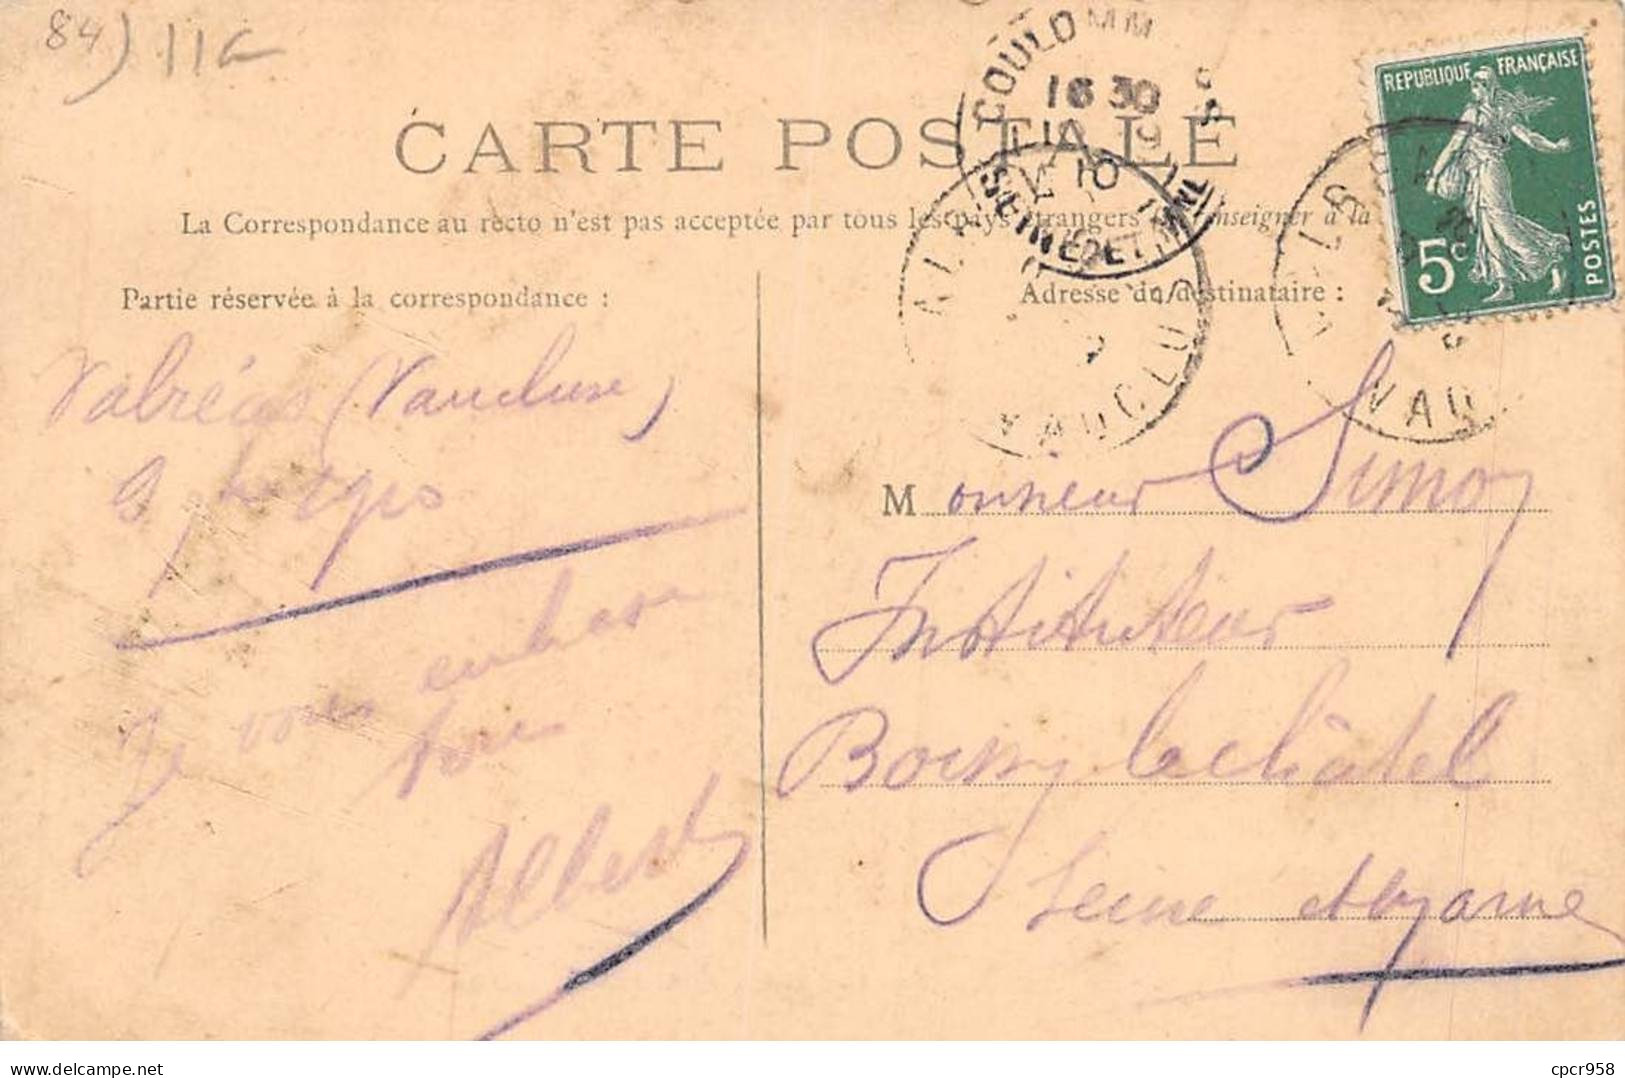 84) 11G
COULOMM
16 30
10
SEINE-ET-MARNE
CARTE POSTALE
La Correspondance au recto n'est pas acceptée par tous les pays étrangers enseigner à la
RÉPUBLIQUE FRANÇAISE
5c
POSTES
VAUCLU
VAU
Partie réservée à la correspondance :
Adresse du destinataire :
Valréas (Vaucluse)
9
Je vous embrasse
Albert
Monsieur Simon
Instituteur
Boissy le Châtel
Seine et Marne
Delcampe.net
cpcr958